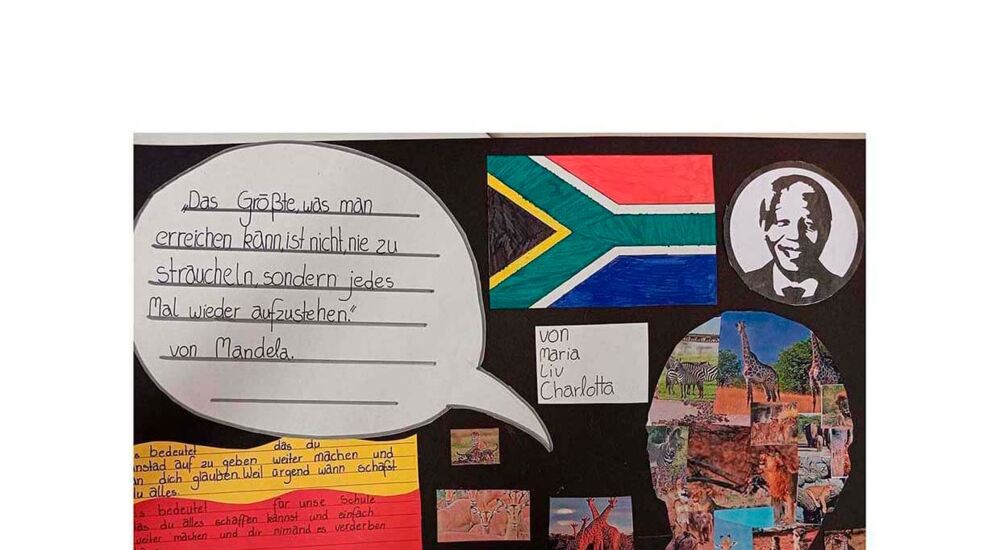 „Das Größte, was man
erreichen kann, ist nicht, nie zu
straucheln, sondern jedes
Mal wieder aufzustehen."
von Mandela.
von
Maria
Liv
Charlotta
s bedeutet das du
nstad auf zu geben weiter machen und
an dich glauben. Weil argend wann schafst
du alles.
s bedeutet für unse Schule
das du alles schaffen kannst und einfach
weiter machen und dir nimand es verderben